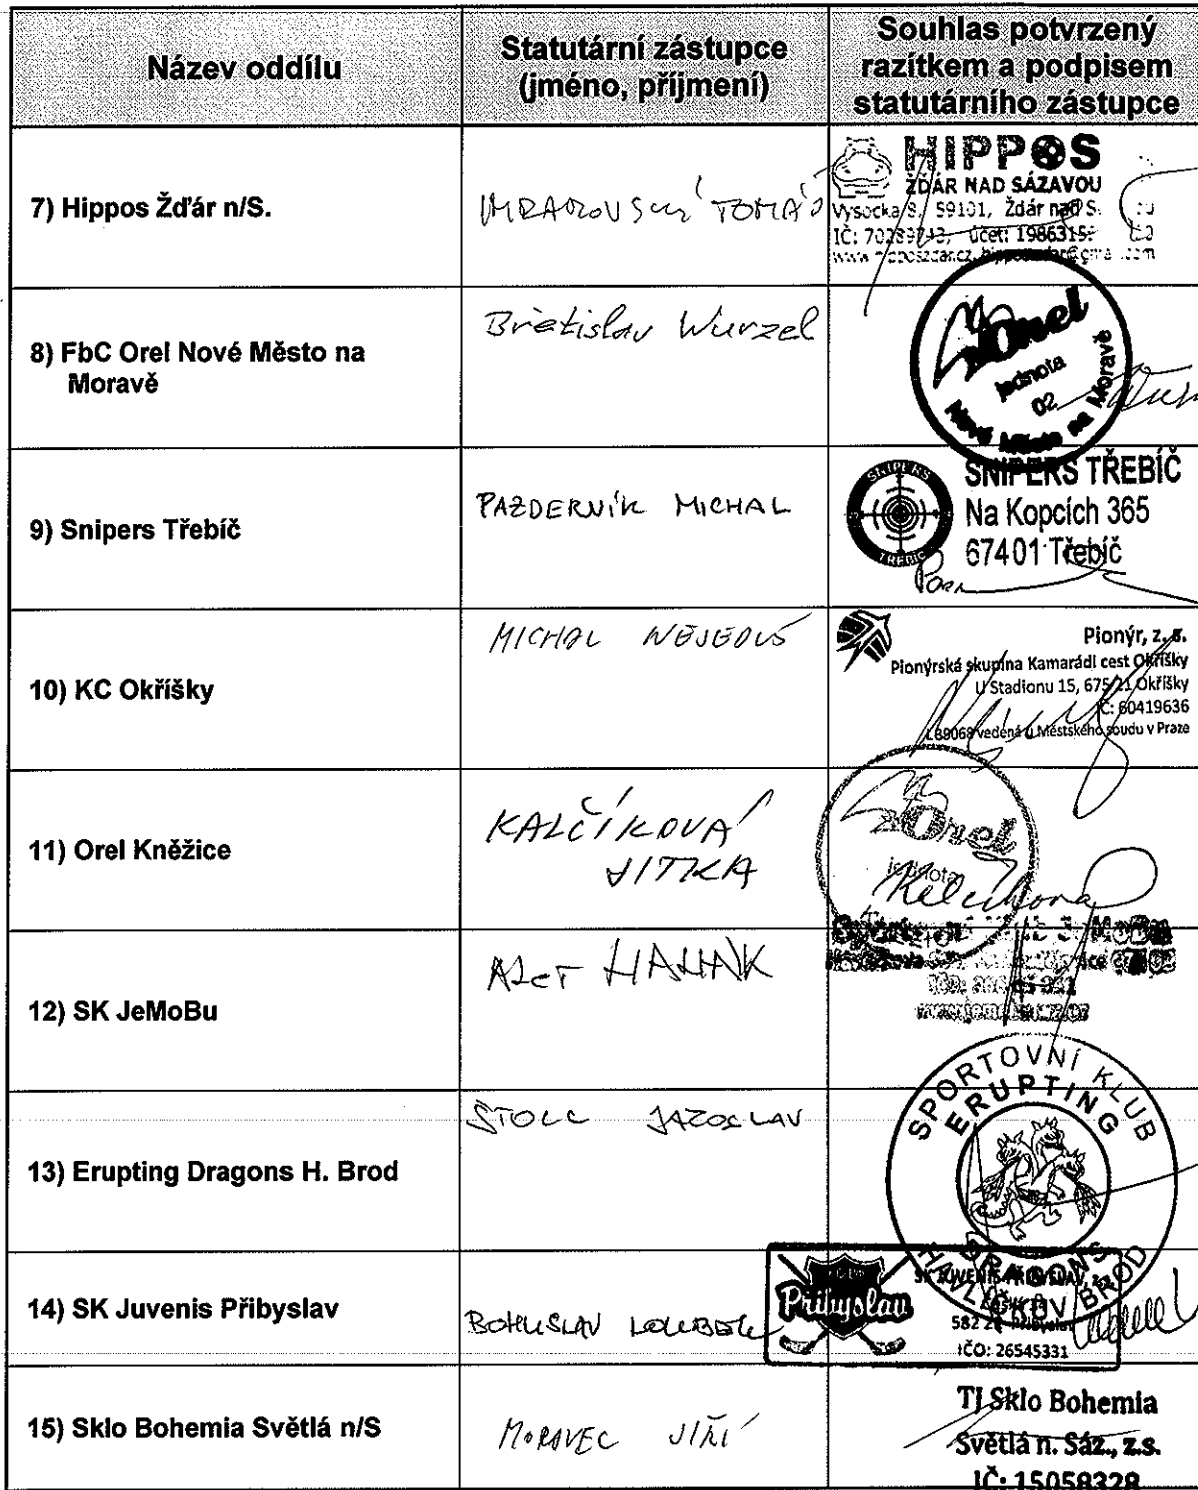 Název oddílu
Statutární zástupce
(jméno, příjmení)
Souhlas potvrzený
razítkem a podpisem
statutárního zástupce
7) Hippos Žďár n/S.
TOMÁŠ
HIPPOS
ŽĎÁR NAD SÁZAVOU
Vysocká 8, 59101, Žďár nad S.
IČ: účet:
8) FbC Orel Nové Město na
Moravě
Břetislav Wurzel
Orel
jednota
02
Nové Město na Moravě
9) Snipers Třebíč
PAZDERNÍK MICHAL
SNIPERS
TŘEBÍČ
SNIPERS TŘEBÍČ
Na Kopcích 365
67401 Třebíč
10) KC Okříšky
MICHAL NEJEDLÝ
Pionýr, z.s.
Pionýrská skupina Kamarádi cest Okříšky
U Stadionu 15, 675 21 Okříšky
IČ: 60419636
L89068 vedená u Městského soudu v Praze
11) Orel Kněžice
KALČÍKOVÁ
JITKA
Orel
jednota
12) SK JeMoBu
13) Erupting Dragons H. Brod
ŠTOLC JAROSLAV
SPORTOVNÍ KLUB
ERUPTING
DRAGONS
HAVLÍČKŮV BROD
14) SK Juvenis Přibyslav
BOHUSLAV
Přibyslav
SK JUVENIS PŘIBYSLAV,
Přibyslav
IČO: 26545331
15) Sklo Bohemia Světlá n/S
MORAVEC JIŘÍ
TJ Sklo Bohemia
Světlá n. Sáz., z.s.
IČ: 15058328